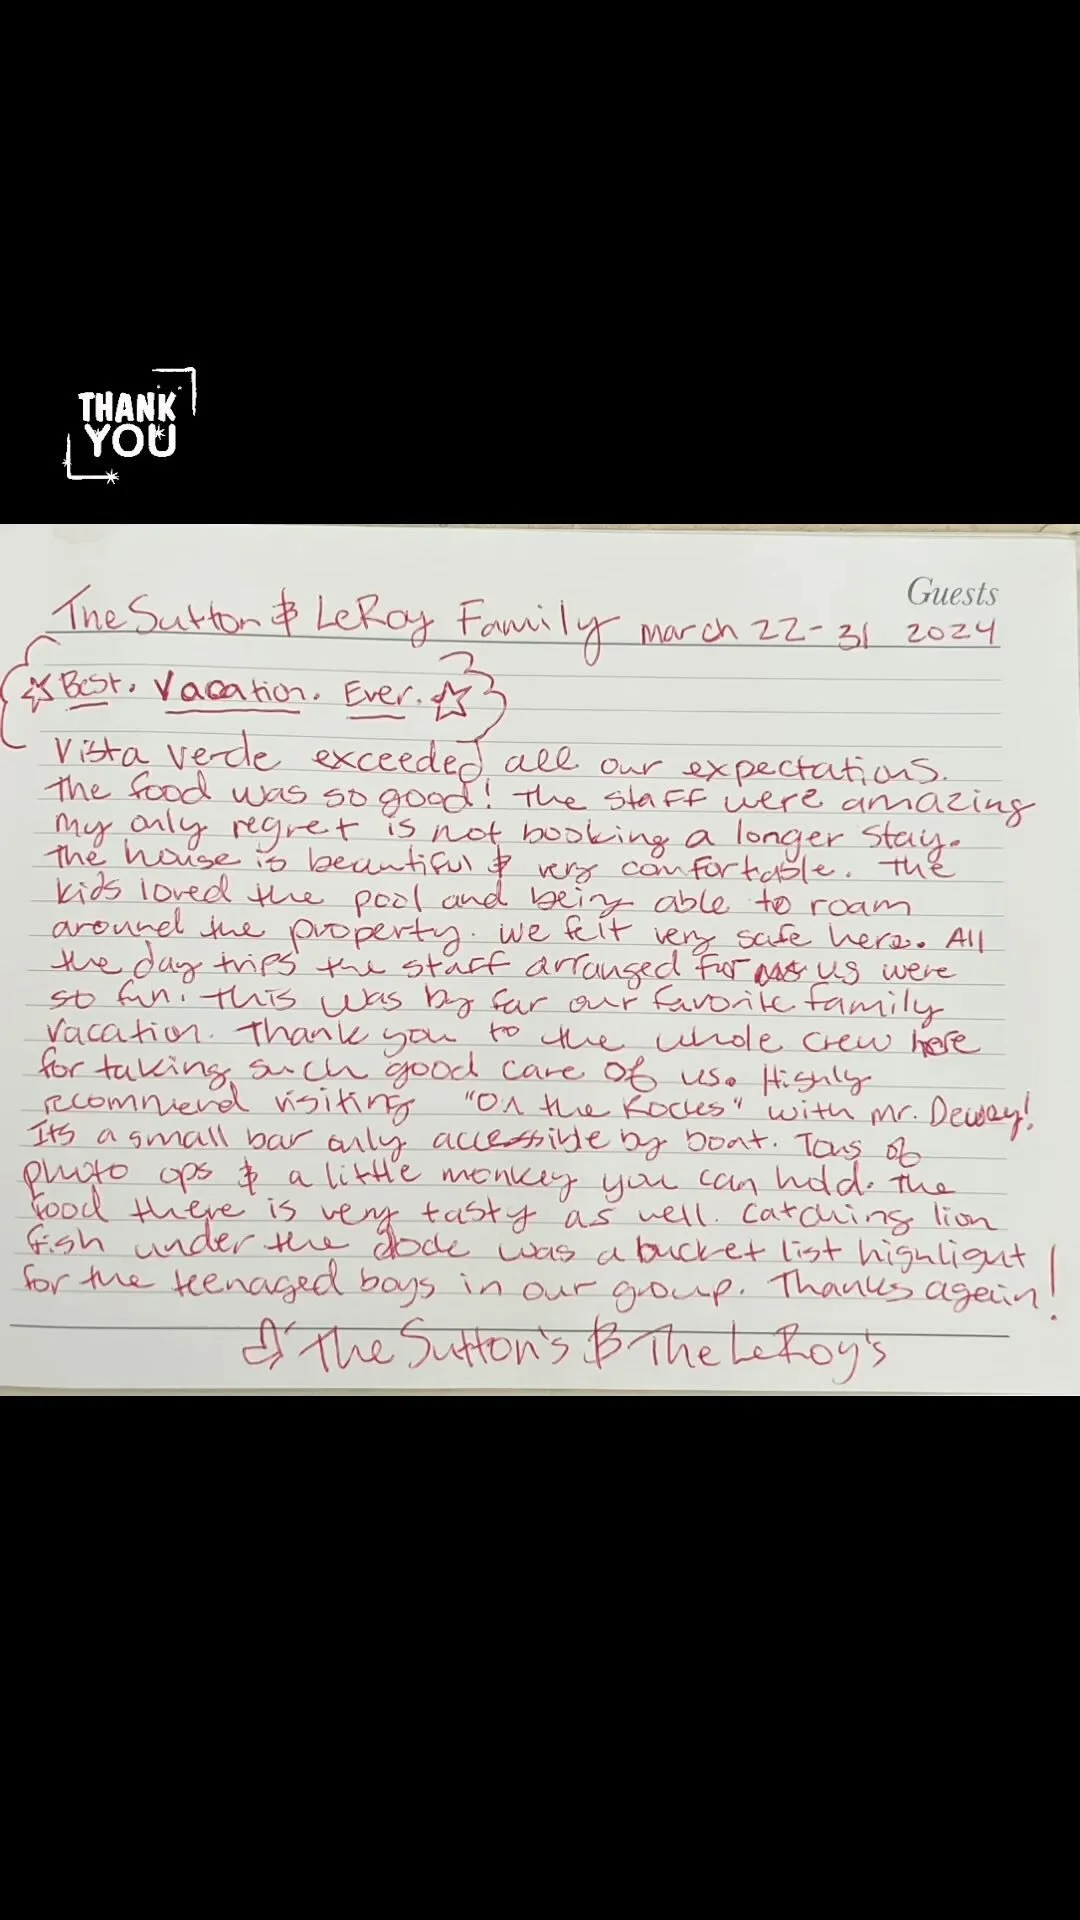 THANK
YOU
Guests
The Sutton & LeRoy Family march 22-31 2024
☆ Best. Vacation. Ever. ☆
Vista Verde exceeded all our expectations.
The food was so good! The staff were amazing
My only regret is not booking a longer stay.
The house is beautiful & very comfortable. The
kids loved the pool and being able to roam
around the property. We felt very safe here. All
the day trips the staff arranged for us were
so fun. This was by far our favorite family
vacation. Thank you to the whole crew here
for taking such good care of us. Highly
recommend visiting "On the Rocks" with Mr. Dewey!
Its a small bar only accessible by boat. Tons of
photo ops & a little monkey you can hold. The
food there is very tasty as well. Catching lion
fish under the dock was a bucket list highlight
for the teenaged boys in our group. Thanks again!
The Sutton's & The LeRoy's